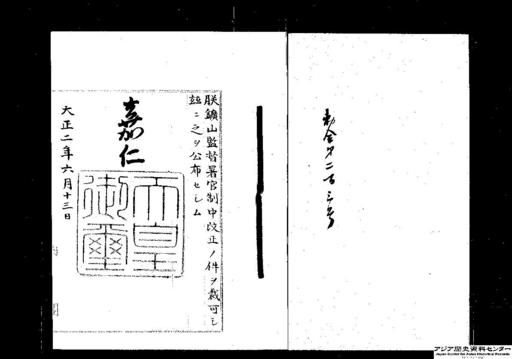 勅令第二百三号
朕鑛山監督署官制中改正ノ件ヲ裁可シ
玆ニ之ヲ公布セシム
嘉仁
天皇御璽
大正二年六月十三日
アジア歴史資料センター
Japan Center for Asian Historical Records